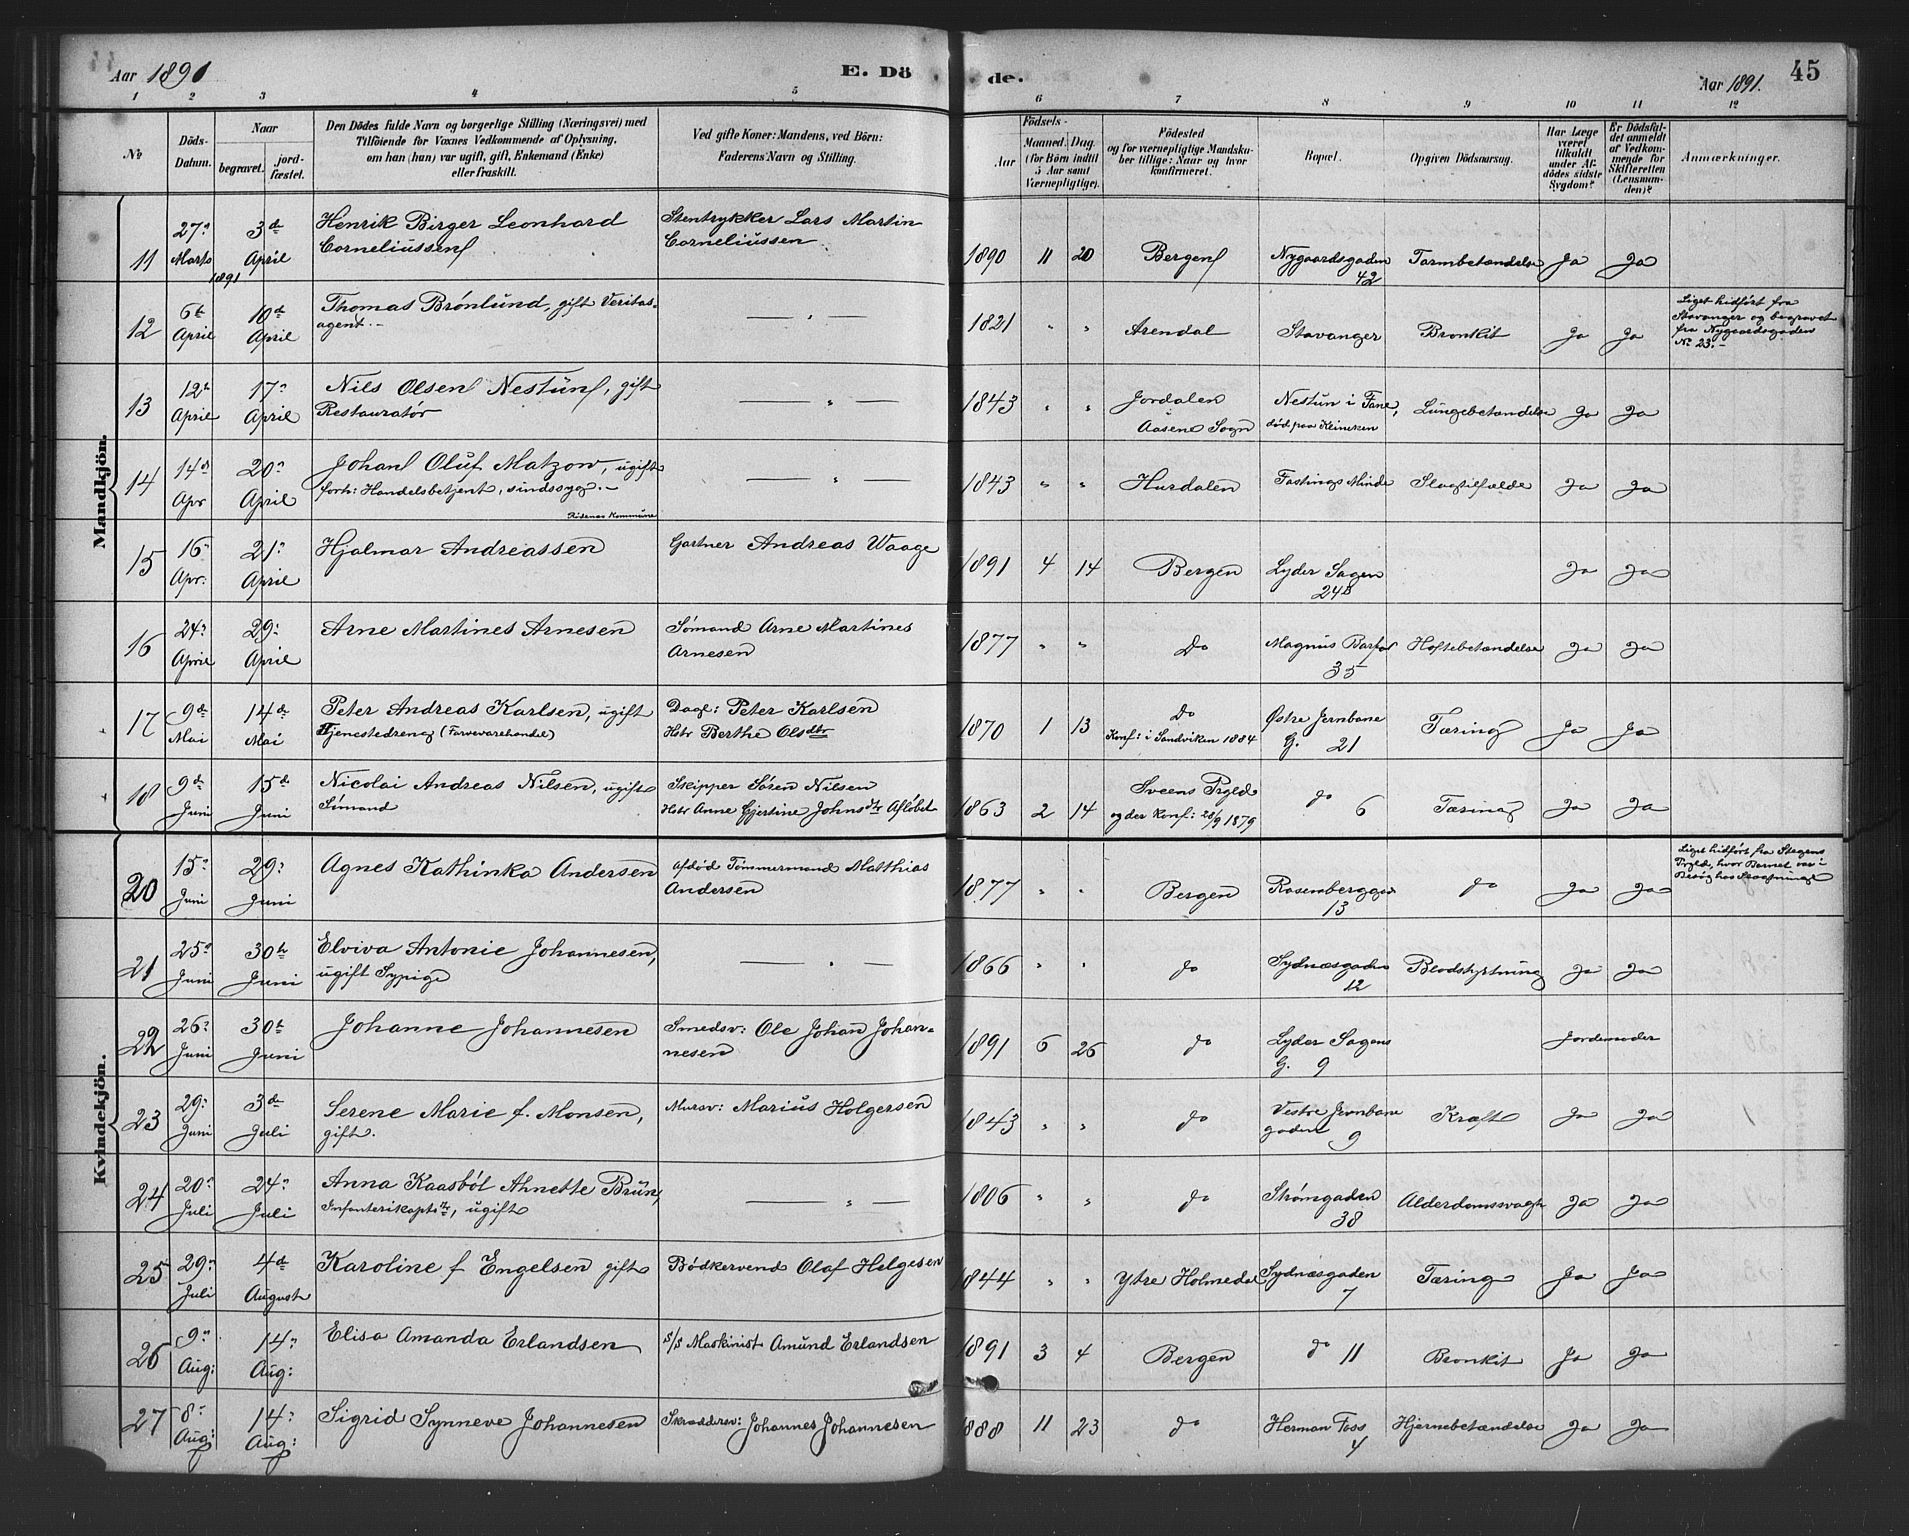 Aar 1891 E. Dö de. Aar 1891. 45
1 2 3 4 5 6 7 8 9 10 11 12
No. Döds-Datum. Naar begravet. jord-fæstet. Den Dödes fulde Navn og borgerlige Stilling (Næringsvei) med Tilföiende for Voxnes Vedkommende af Oplysning, om han (hun) var ugift, gift, Enkemand (Enke) eller fraskilt. Ved gifte Koner: Mandens, ved Börn: Faderens Navn og Stilling. Födsels- Aar Maaned. Dag. (for Börn indtil 5 Aar samt Værnepligtige). Födested og for værnepligtige Mandskaber tillige: Naar og hvor konfirmeret. Bopæl. Opgiven Dödsaarsag. Har Læge været tilkaldt under Afdödes sidste Sygdom? Er Dödsfaldet anmeldt af Vedkommende for Skifteretten (Lensmanden)? Anmærkninger.
Mandkjön.
11 27 Marts 1891 3de April Henrik Birger Leonhard Corneliussen Stentrykker Lars Martin Corneliussen 1890 11 20 Bergen Nygaardsgaden 42 Tarmbetændelse Ja Ja
12 6te April 10de April Thomas Brönlund, gift Veritas-agent. — " — 1821 " " Arendal Stavanger Bronkit Ja Ja Liget hidført fra Stavanger og begravet fra Nygaardsgaden No 23. —
13 12te April 17 April Nils Olsen Nestün, gift Restauratör — " — 1843 " " Jordalen Aasene Sogn Nestun i Fane, död paa Kliniken Lüngebetændelse Ja Ja
14 14de Apr 20 April Johan Oluf Matzow, ugift forh: Handelsbetjent, sindssyg. — Kommüne — " — 1843 " " Hurdalen Fastings Minde Slagtilfælde Ja Ja
15 16 Apr: 21 April Hjalmar Andreassen Gartner Andreas Waage 1891 4 14 Bergen Lyder Sagen 24B Ja Ja
16 24 April 29 April Arne Martines Arnesen Sömand Arne Martines Arnesen 1877 " " Do Magnus Barfod 35 Hoftebetændelse Ja Ja
17 9de Mai 14de Mai Peter Andreas Karlsen, ugift Tjenestedreng (Farvevarehandel) Dagl: Peter Karlsen Hstr Berthe Olsdtr 1870 1 13 Do Konf: i Sandviken 1884 Østre Jernbane G. 21 Tæring Ja Ja
18 9de Juni 15de Juni Nicolai Andreas Nilsen, ugift Sömand Skipper Sören Nilsen Hstr Anne Gjertine Johnsdtr Aflöbet 1863 2 14 Sveens Prgld og der Konf: 28/9 1879 do 6 Tæring Ja Ja
Kvindekjön.
20 15 Juni 29 Juni Agnes Kathinka Andersen Afdöd Tömmermand Matthias Andersen 1877 " " Bergen Rosenberggd 13 do Ja Ja Liget hidført fra Prgld, hvor Barnet var i Besøg hos
21 25 Juni 30te Juni Elviva Antonie Johannesen, ugift Sypige — " — 1866 " " do Sydnæsgaden 12 Blodstyrtning Ja Ja
22 26 Juni 30te Juni Johanne Johannesen Smedsv: Ole Johan Johan-nesen 1891 6 26 do Lyder Sagens G. 9 Jordemoder
23 29 Juni 3de Juli Serene Marie f. Monsen, gift. Mursv: Marius Holgersen 1843 " " do Vestre Jernbane gaden 9 Kræft Ja Ja
24 20 Juli 24 Juli Anna Kaasböl Ahnette Brün, Infanterikaptstr, ugift — " — 1806 " " do Strömgaden 38 Alderdomssvagh Ja Ja
25 29 Juli 4de August Karoline f Engelsen gift Bödkersvend Olaf Helgesen 1844 " " Ytre Holmedal Sydnæsgaden 7 Tæring Ja Ja
26 9 Aug: 14 Aug: Elisa Amanda Erlandsen s/s Maskinist Amünd Erlandsen 1891 3 4 Bergen do 11 Bronkit Ja Ja
27 8 Aug: 14 Aug: Sigrid Synneve Johannesen Skræddersv: Johannes Johannesen 1888 11 23 do Herman Foss 4 Hjernebetændelse Ja Ja